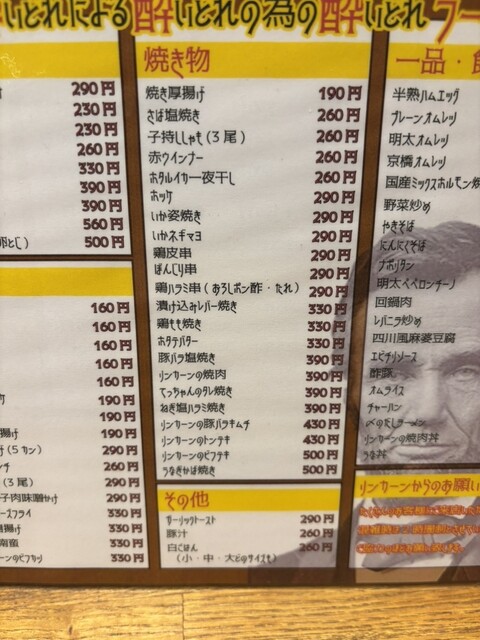 いどれによる酔いどれの為の酔いどれラー
290円
230円
230円
260円
330円
390円
390円
560円
とじ) 500円
160円
160円
160円
160円
160円
190円
190円
揚げ 190円
げ(5カン) 290円
ンチ 260円
(3尾) 290円
子肉味噌かけ 290円
ースフライ 330円
揚げ 330円
南蛮 330円
ーンのビフカツ 330円
焼き物
焼き厚揚げ 190円
さば塩焼き 260円
子持ししゃも(3尾) 260円
赤ウインナー 260円
ホタルイカ一夜干し 260円
ホッケ 290円
いか姿焼き 290円
いかネギマヨ 290円
鶏皮串 290円
ぼんじり串 290円
鶏ハラミ串(おろしポン酢・たれ) 290円
漬け込みレバー焼き 330円
鶏もも焼き 330円
ホタテバター 330円
豚バラ塩焼き 390円
リンカーンの焼肉 390円
てっちゃんのタレ焼き 390円
ねぎ塩ハラミ焼き 390円
リンカーンの豚バラキムチ 430円
リンカーンのトンテキ 430円
リンカーンのビフテキ 500円
うなぎかば焼き 500円
その他
ガーリックトースト 290円
豚汁 260円
白ごはん 260円
(小・中・大どのサイズも)
一品・
半熟ハムエッグ
プレーンオムレツ
明太オムレツ
京橋オムレツ
国産ミックスホルモン焼
野菜炒め
やきそば
にんにくそば
ナポリタン
明太ペペロンチーノ
回鍋肉
レバニラ炒め
四川風麻婆豆腐
エビチリソース
酢豚
オムライス
チャーハン
〆のだしラーメン
リンカーンの焼肉丼
うな丼
リンカーンからのお願い